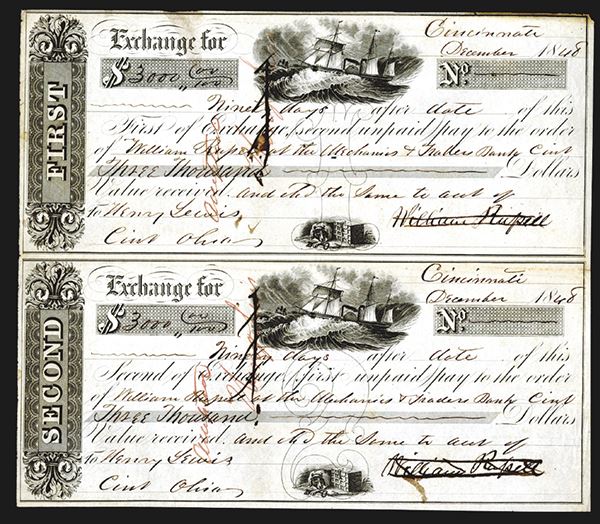 FIRST
Exchange for
Cincinnati
December 1848
$ 3000 00/100
No.
Ninety days after date of this
First of Exchange, second unpaid pay to the order
of William at the Mechanics & Traders Bank Cint
Three Thousand Dollars
Value received and chd the Same to acct of
to Henry Lewis
William
Cint Ohio
SECOND
Exchange for
Cincinnati
December 1848
$ 3000 00/100
No.
Ninety days after date of this
Second of exchange, first unpaid pay to the order
of William at the Mechanics & Traders Bank Cint
Three Thousand Dollars
Value received and chd the Same to acct of
to Henry Lewis
William
Cint Ohio